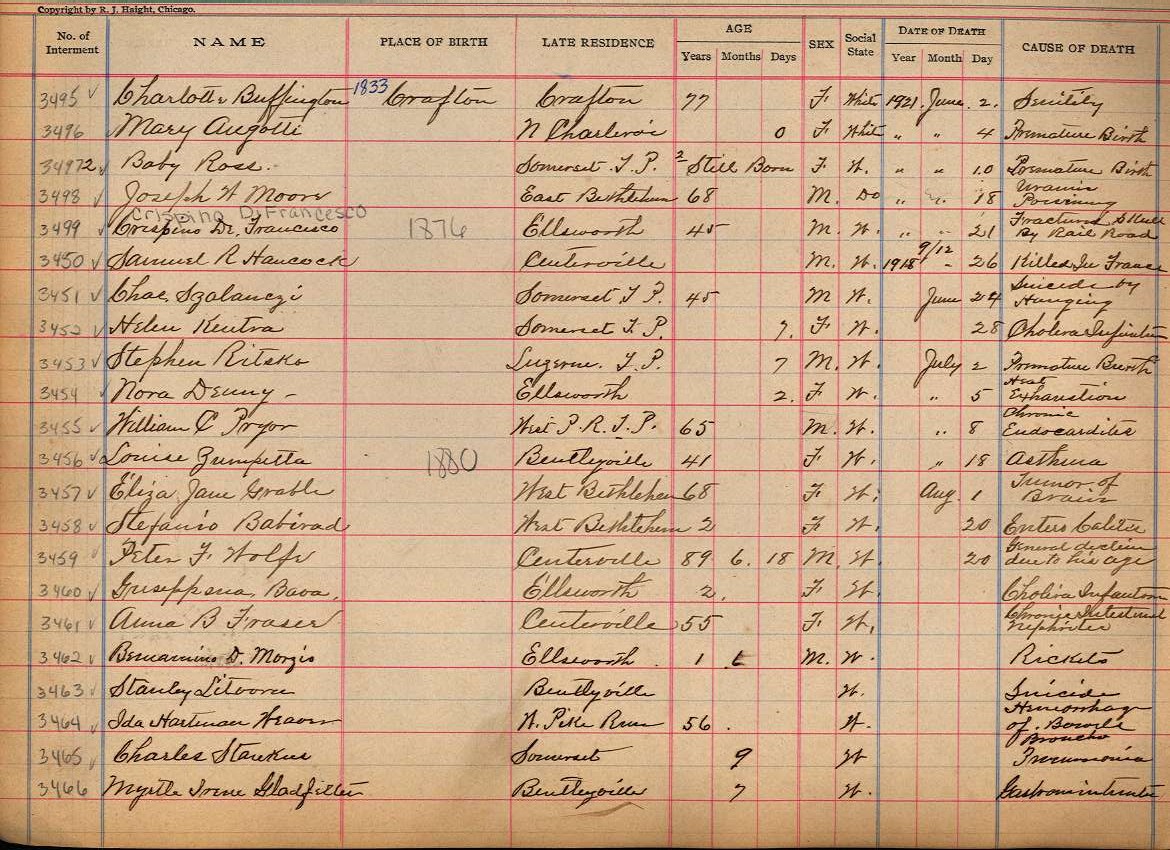 Copyright by R. J. Haight, Chicago.
No. of Interment NAME PLACE OF BIRTH LATE RESIDENCE AGE SEX Social State DATE OF DEATH CAUSE OF DEATH
Years Months Days Year Month Day
3495 Charlotte Buffington 1833 Crafton Crafton 77 F. White 1921 June 2. Senility
3496 Mary Augotti N Charleroi 0 F White " " 4 Premature Birth
3497 2 Baby Ross. Somerset T. P. 2 Still Born F W. " " 10 Premature Birth
3498 Joseph W Moore East Bethlehem 68 M. Do " " 18 Uremic Poisoning
Crispino DiFrancesco
3499 Crispino Di Francisco 1876 Ellsworth 45 M. W. " " 21 Fractured Skull By Rail Road
3450 Samuel R Hancock Centerville M. W. 1918 9/12 " 26 Killed In France
3451 Chas Szalanczi Somerset T P. 45 M W. June 24 Suicide by Hanging
3452 Helen Kentra Somerset T. P. 7. F W. 28 Cholera Infantum
3453 Stephen Ritsko Luzerne. T. P. 7 M. W. July 2 Premature Breath
3454 Nora Denny - Ellsworth 2. F W. " 5 Heat Exhaustion
3455 William C Pryor West P. R. T. P. 65 M. W. " 8 Chronic Endocarditis
3456 Louise Zumpetta 1880 Bentleyville 41 F W. " 18 Asthma
3457 Eliza Jane Grable West Bethlehem 68 F W. Aug. 1 Tumor of Brain
3458 Stefanio Babirad West Bethlehem 2 F W. 20 Entero Colitis
3459 Peter F Wolfe Centerville 89 6. 18 M. W. 20 General decline due to his age
3460 Guseppena Bava. Ellsworth 2. F W. Cholera Infantum
3461 Anna B Fraser Centerville 55 F W. Chronic Intestinal Nephritis
3462 D. Morgis Ellsworth 1 6 M. W. Rickets
3463 Stanley Litvora Bentlyville W. Suicide
3464 Ida Hartman Weaver W. Pike Run 56 W. Hemorrhage of Bowels
3465 Charles Stankus Somerset 9 W Broncho Pneumonia
3466 Myrtle Irene Gladfelter Bentleyville 7 W.